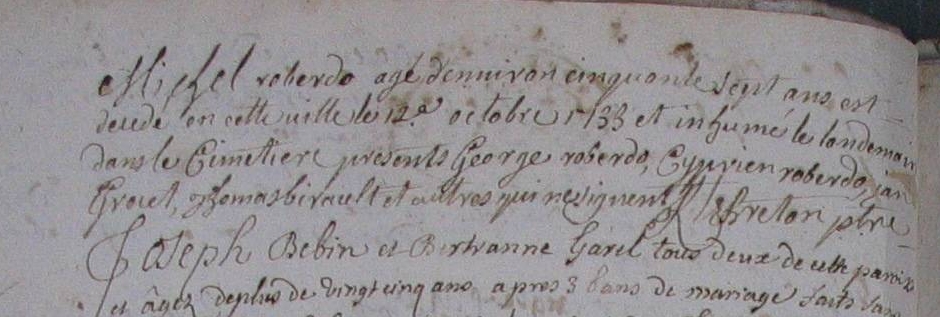 Michel roberdo agé denuiron cinquante sept ans est
decedé en cette uille le 12.e octobre 1733 et inhumé le londemain
dans le Cimetiere presents George roberdo, Cyprien roberdo, jan
Grouet, thomas birault et autres qui ne signent // Breton ptre
Joseph Bebin et Bertranne Garel tous deux de cette paroisse
et âgez de plus de vingt cinq ans apres 3 bans de mariage faits sans